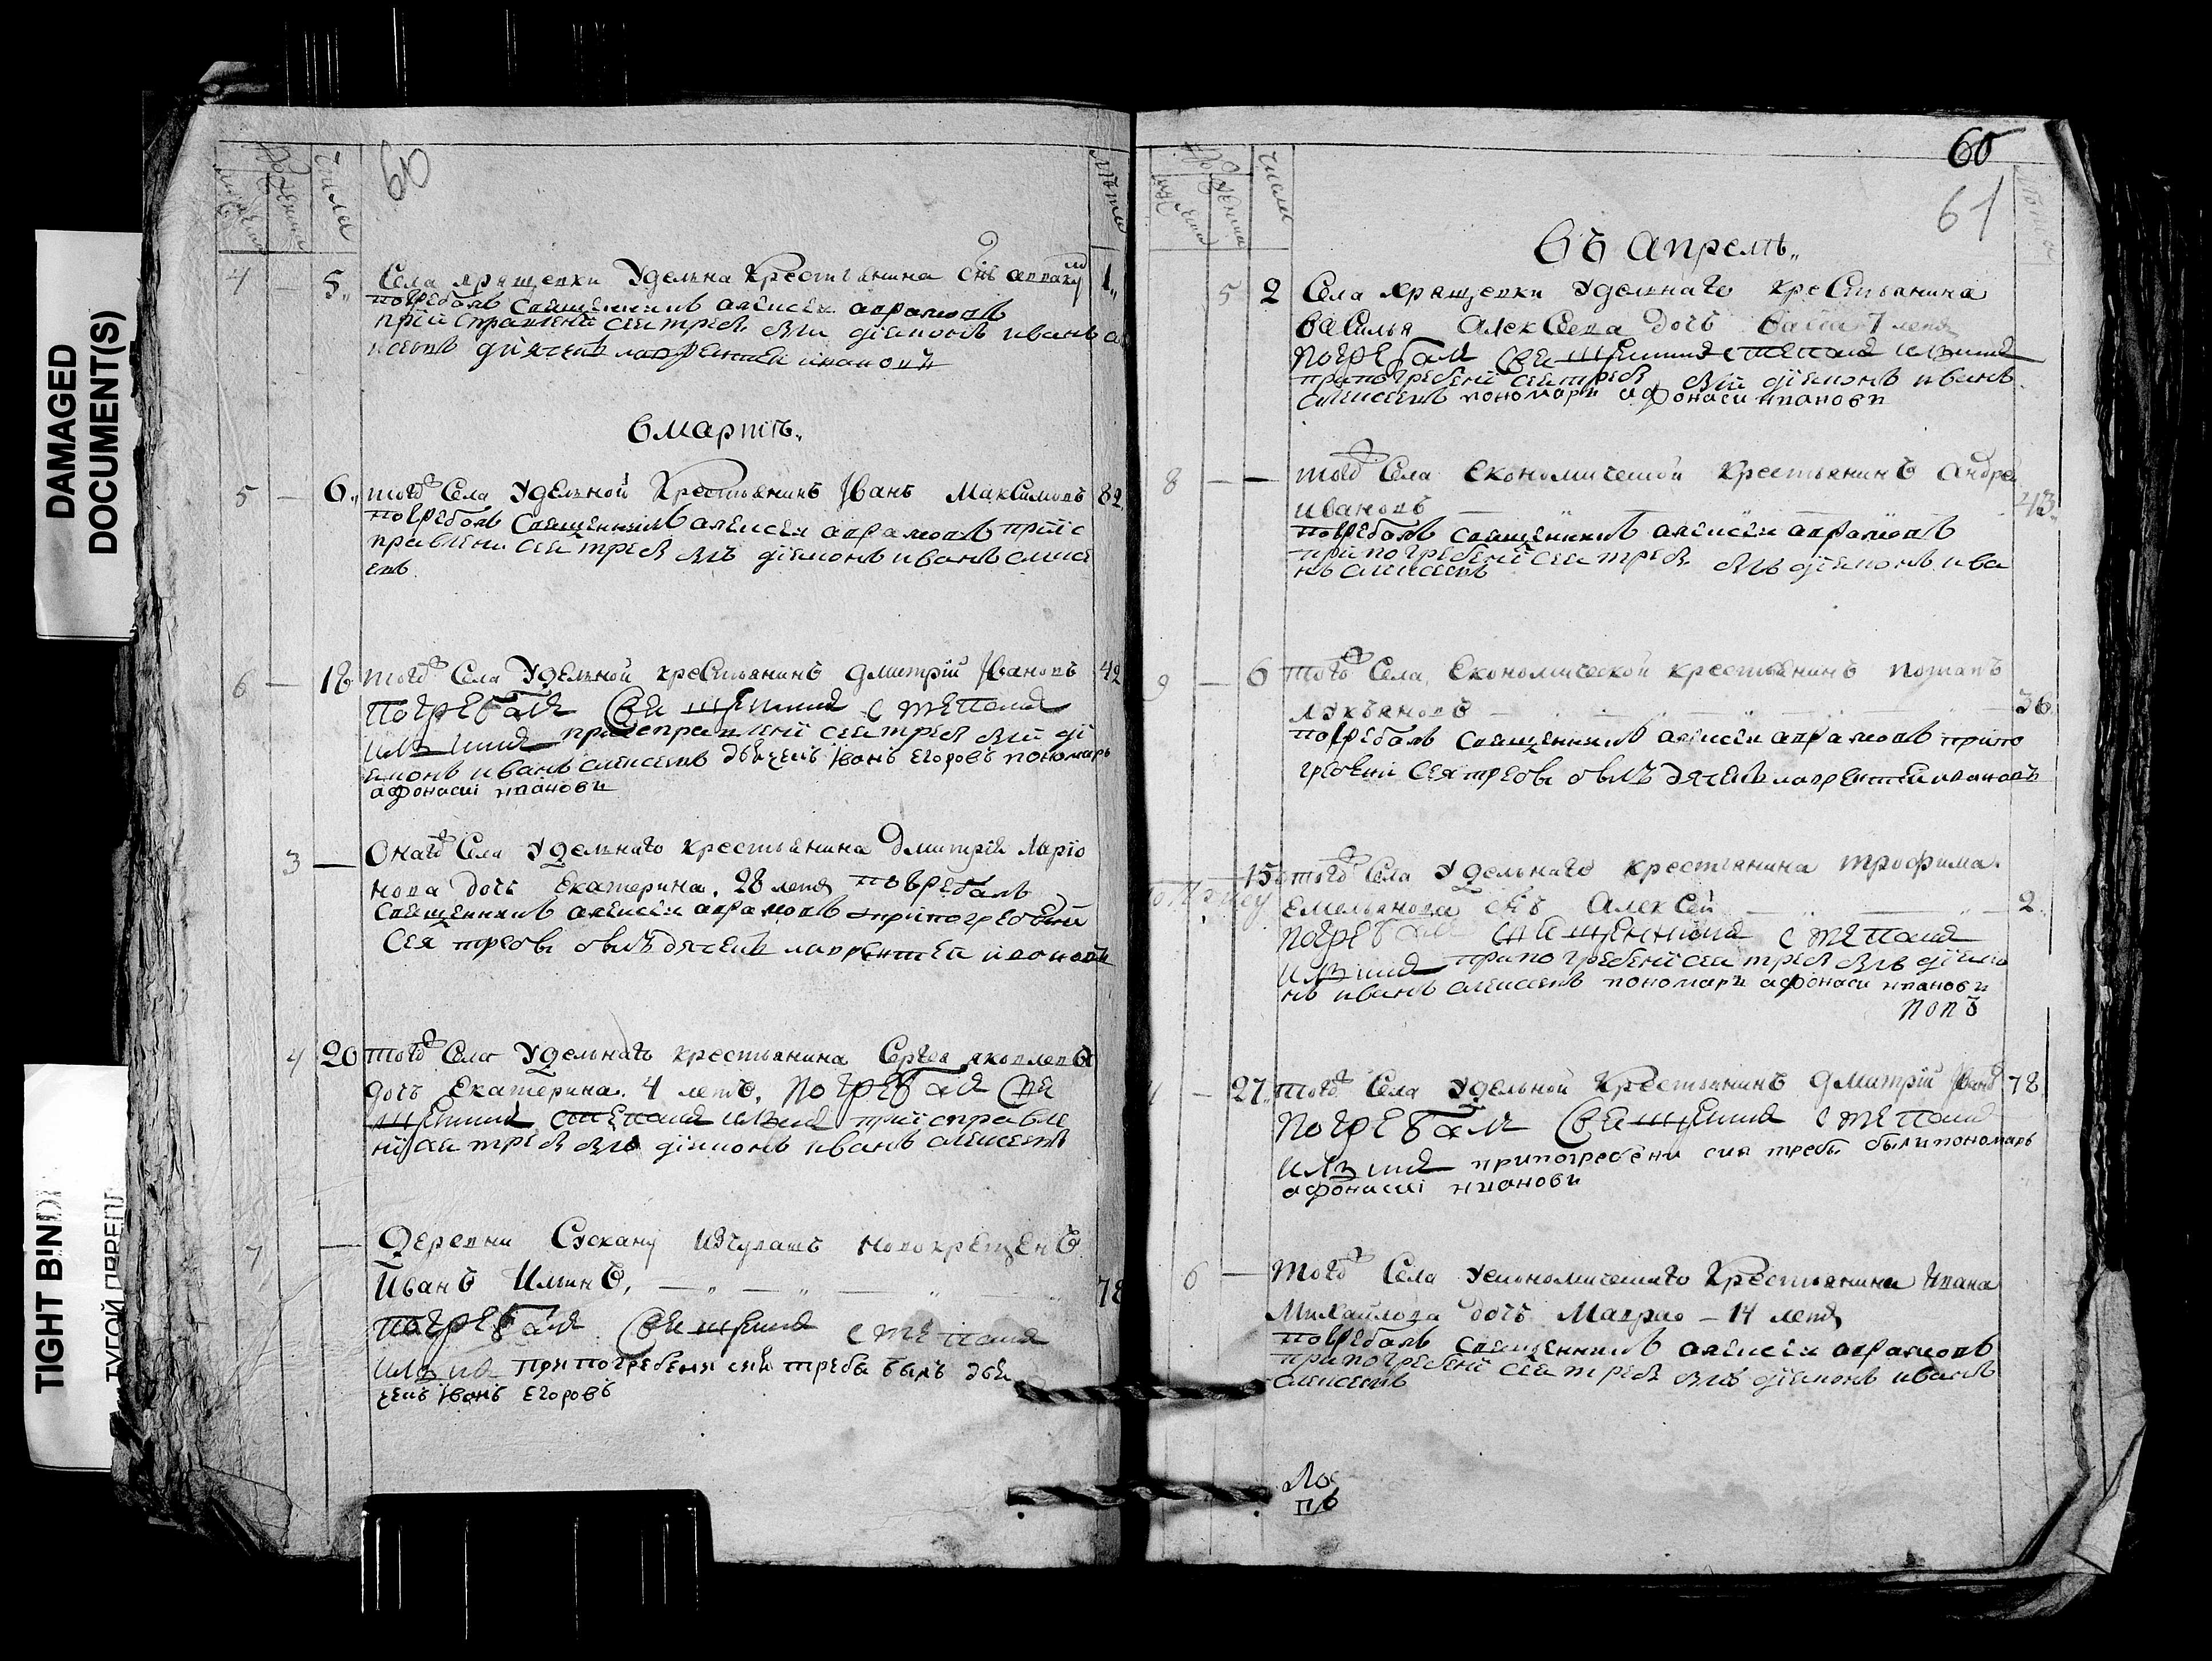 DAMAGED
DOCUMENT(S)
TIGHT BINDI
ТУГОЙ ПЕРЕПЛ
числа
60
лѣта
4 — 5
Села Ярящевки Удельна Крестьянина снъ
1
погребалъ священникъ алексеи аврамовъ
при справлени сеи требы былъ діаконъ иванъ
дьячекъ лаврентеи ивановъ
в Мартѣ
5 — 6 тогд Села Удельной Крестьянинъ Иванъ Максимовъ 82
погребалъ священникъ алексеи аврамовъ при с
правлени сеи требы былъ діаконъ иванъ алексе
евъ
6 — 18 тогд Села Удельной крестьянинъ Дмитрій Ивановъ 42
погребалъ священникъ степанъ
ильинъ при справлени сеи требы были ді
яконъ иванъ алексеевъ дьячекъ Іванъ Егоровъ пономарь
афонасиі ивановъ
3 — Онагд Села Удельнаго крестьянина Дмитрія Ларіо
нова дочь Екатерина 28 летъ погребалъ
священникъ алексеи аврамовъ припогребени
Сея требы былъ дячекъ лаврентеи ивановъ
4 20 тогд Села Удельнаго крестьянина Сергея яковлева
дочь Екатерина 4 летъ, погребалъ свя
щенникъ степанъ ильинъ при справле
ніи сеи требы былъ діяконъ иванъ алексеевъ
7 — Деревни Сускану Изчувашъ новокрещенъ
Иванъ Ильинъ, 78
погребалъ священникъ степанъ
ильинъ припогребени сей требы былъ дья
чекъ Іванъ Егоровъ
60
61
числа
Въ апрелѣ
5 2 Села Ярящевки Удельнаго крестьянина
Василья Алексеева дочь 7 летъ
погребалъ священникъ степанъ ильинъ
припогребені сеи требы были діяконъ иванъ
алексеевъ пономарь афонаси ивановъ
8 — — тогд Села Економической крестьянинъ Андрей
Ивановъ 43
погребалъ священникъ алексеи аврамовъ
при погребені сеи требы былъ діяконъ ива
нъ алексеевъ
9 — 6 тогд Села Економической крестьянинъ потапъ
Лукъяновъ 36
погребалъ священникъ алексеи аврамовъ припо
гребени Сея требы былъ дячекъ лаврентеи ивановъ
15 тогд Села Удельнаго крестьянина трофима
Емельянова снъ Алексей 2
погребалъ священникъ степанъ
ильинъ припогребені сеи требы былъ діяко
нъ иванъ алексеевъ пономарь афонаси ивановъ
попъ
— 27 тогд Села Удельной Крестьянинъ Дмитрій 78
погребалъ священникъ степанъ
ильинъ припогребени сия требы были пономарь
афонасиі ивановъ
6 — тогд Села Економическаго крестьянина Ивана
Михайлова дочь Мавра — 14 летъ
погребалъ священникъ алексеи аврамовъ
припогребені сеи требы былъ діяконъ иванъ
алексеевъ